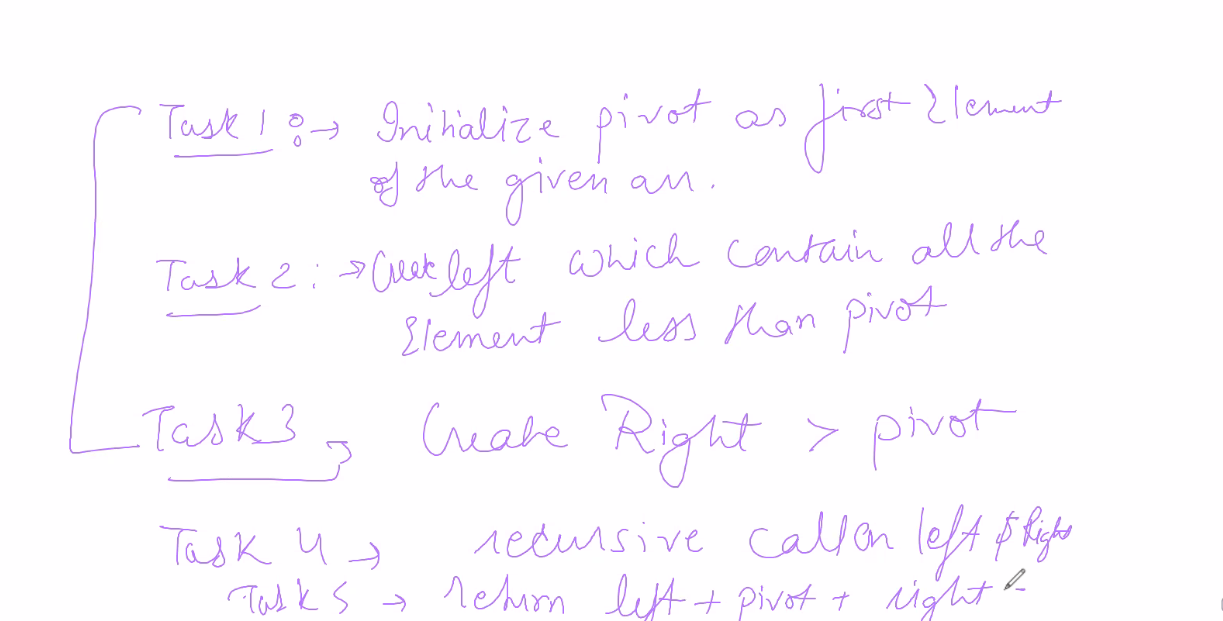 Task 1 :→ Initialize pivot as first Element
of the given arr.
Task 2 : → Create left which contain all the
Element less than pivot
Task 3 → Create Right > pivot
Task 4 → recursive call on left & Right
Task 5 → return left + pivot + right